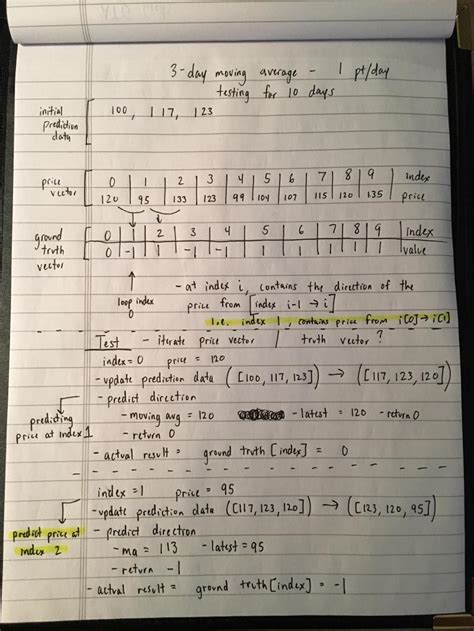 3-day moving average - 1 pt/day
testing for 10 days
initial prediction data
100, 117, 123
price vector
0 1 2 3 4 5 6 7 8 9 index
120 95 133 123 99 104 107 115 120 135 price
ground truth vector
0 1 2 3 4 5 6 7 8 9 index
0 -1 1 -1 -1 1 1 1 1 1 value
loop index 0
- at index i, contains the direction of the
price from [index i-1 → i]
i.e. index 1, contains price from i[0] → i[1]
Test - iterate price vector / truth vector?
index=0 price = 120
- update prediction data ([100, 117, 123]) → ([117, 123, 120])
- predict direction
predicting price at index 1
- moving avg = 120 - latest = 120 - return 0
- return 0
- actual result = ground truth [index] = 0
index=1 price = 95
- update prediction data ([117, 123, 120]) → ([123, 120, 95])
predict price at index 2
- predict direction
- ma = 113 - latest = 95
- return -1
- actual result = ground truth [index] = -1